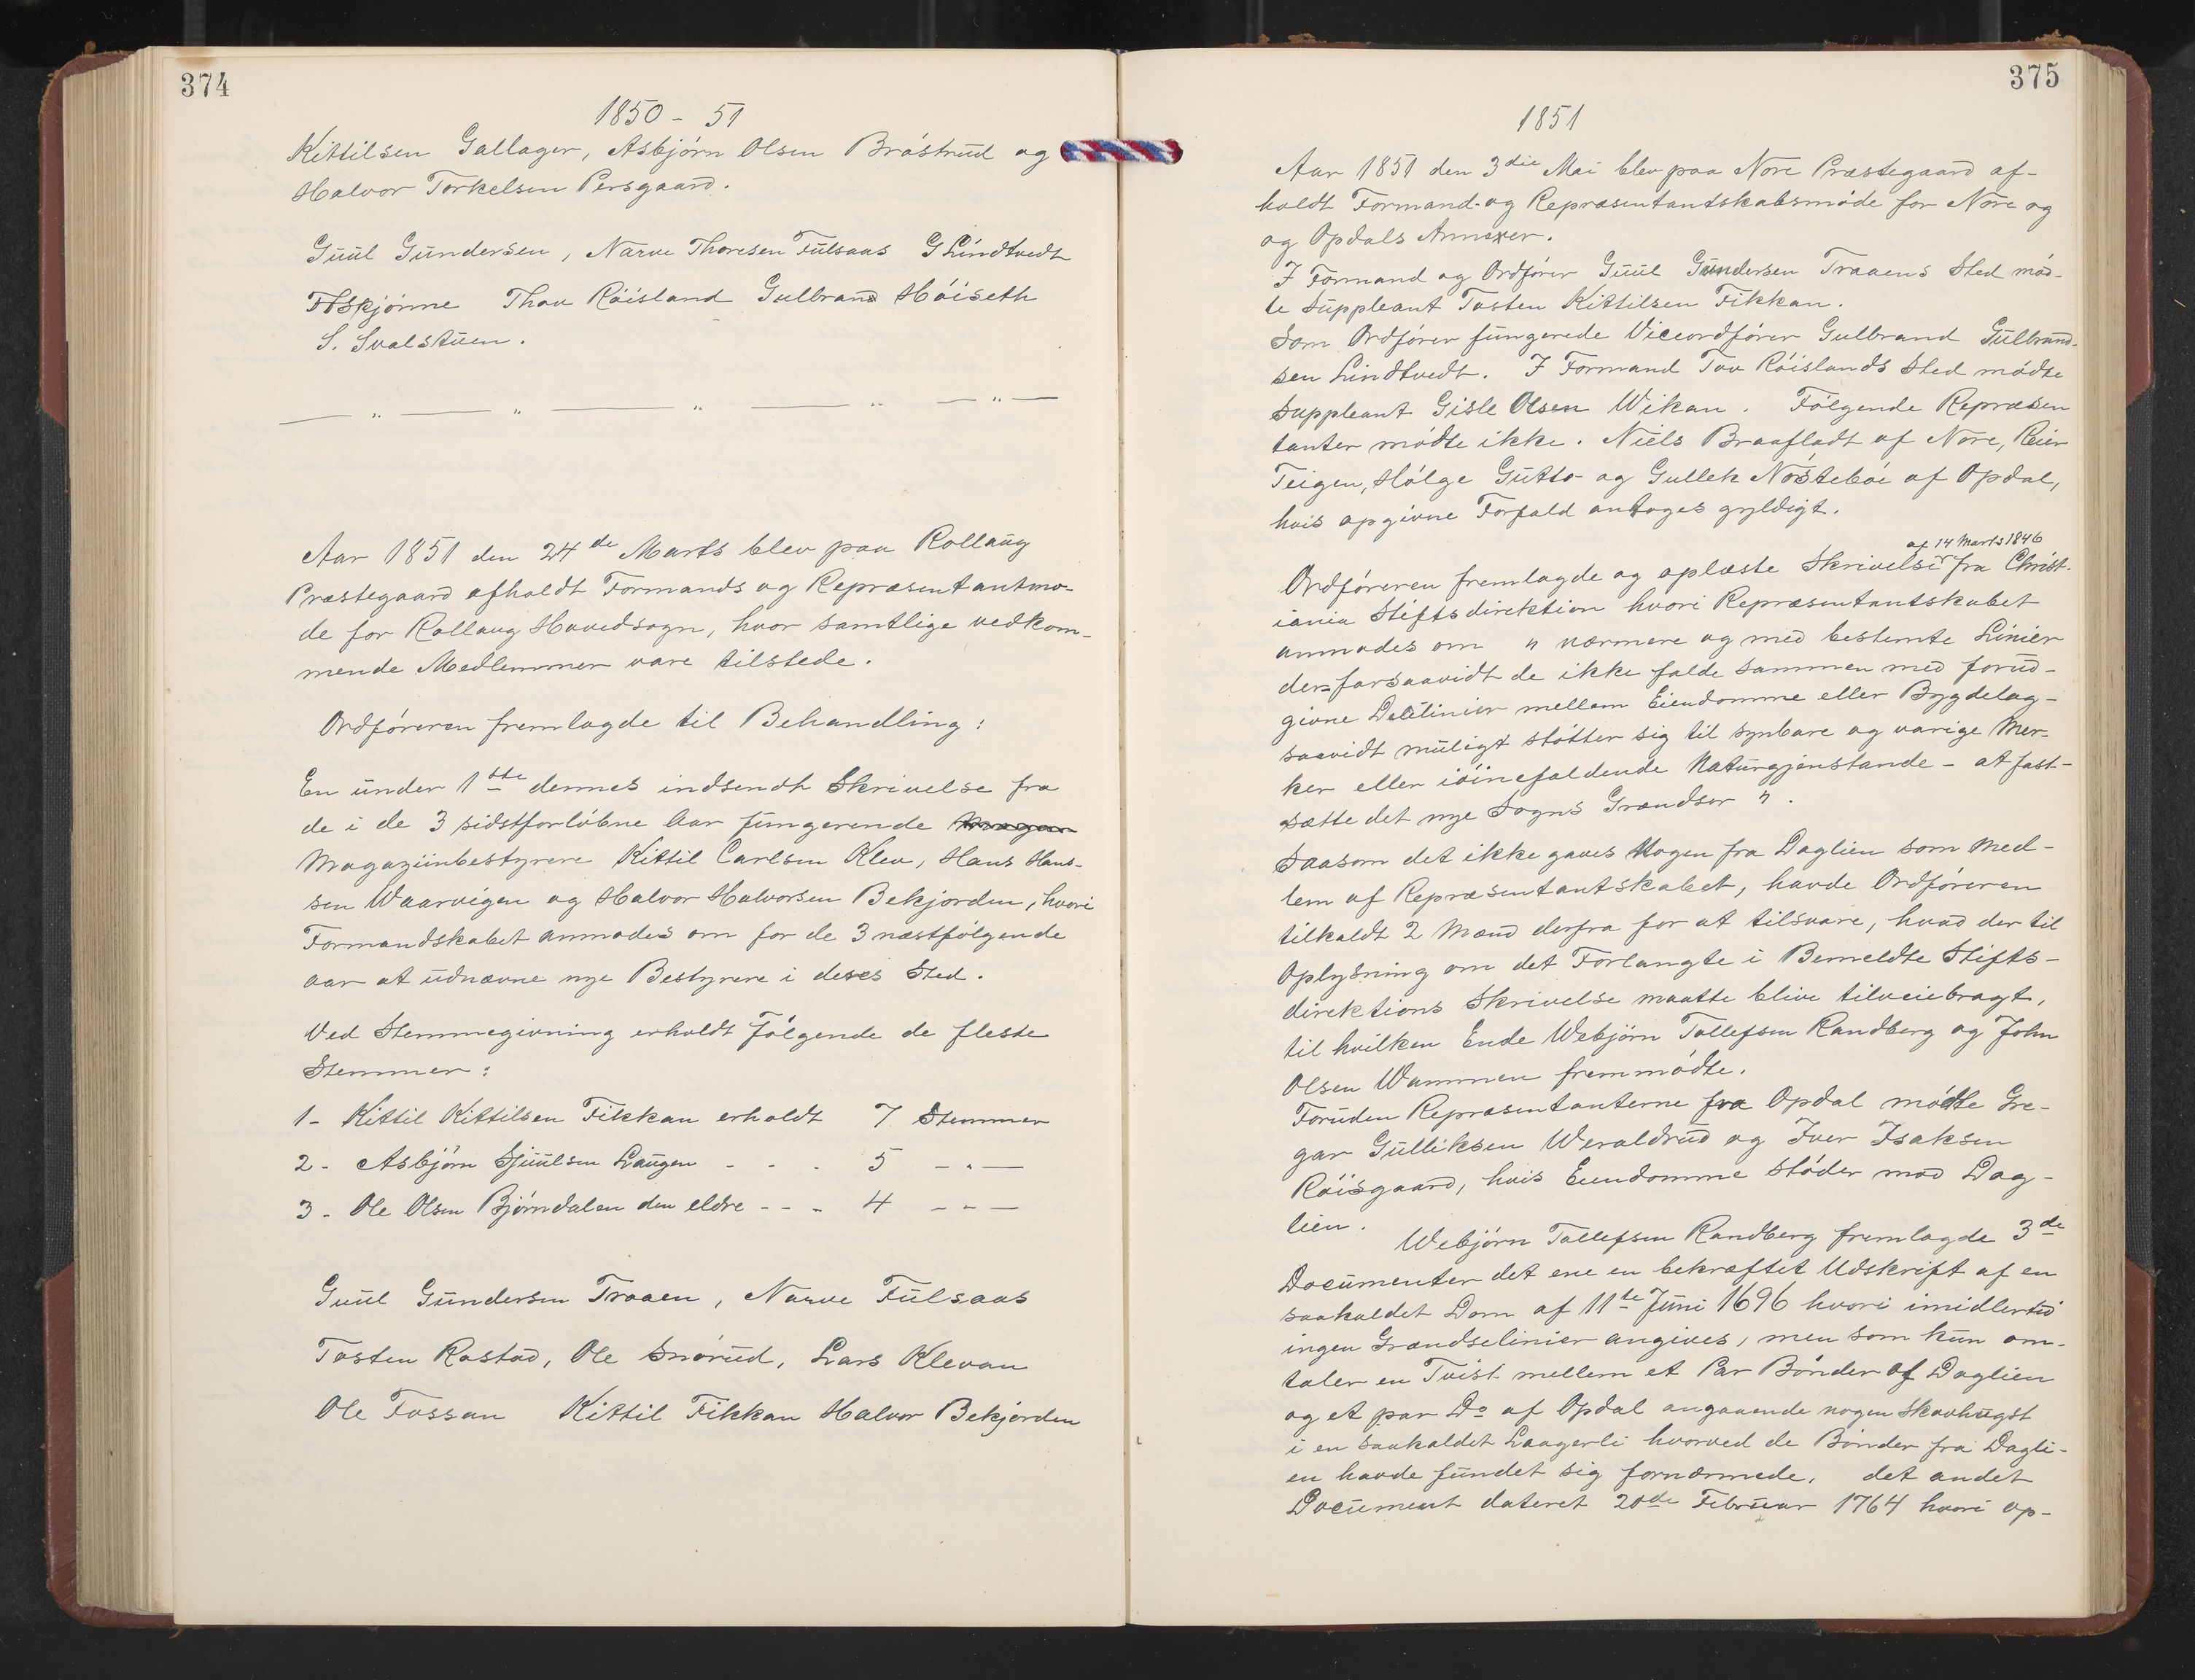 374
1850 - 51
Kittilsen Gallager, Asbjórn Olsen Bróstrud og
Halvor Torkelsen Persgaard.
Guul Gundersen, Narve Thoresen Fulsaas G Lindtvedt
Thov Róisland Gulbrand Hóiseth
S. Svalstuen.
Aar 1851 den 24de Marts blev paa Rollaug
Præstegaard afholdt Formands og Repræsentantmo-
de for Rollaug Hovedsogn, hvor samtlige vedkom-
mende Medlemmer vare tilstede.
Ordfóreren fremlagde til Behandling:
En under 1ste dennes indsendt Skrivelse fra
de i de 3 sidstforlóbne Aar fungerende
Magaziinbestyrere Kittil Carlsen Klev, Hans Hans-
sen Waarvigen og Halvor Halvorsen Bekjorden, hvori
Formandskabet anmodes om for de 3 næstfólgende
aar at udnævne nye Bestyrere i deres Sted.
Ved Stemmegivning erholdt Fólgende de fleste
Stemmer:
1- Kittil Kittilsen Fikkan erholdt 7 Stemmer
2- Asbjórn Sjuulsen Laugen - - - 5 - " -
3- Ole Olsen Bjórndalen den eldre - - - 4 - " -
Guul Gundersen Traaen, Narve Fulsaas
Tosten Rostad, Ole Snórud, Lars Klevan
Ole Fossan Kittil Fikkan Halvor Bekjorden
375
1851
Aar 1851 den 3die Mai blev paa Nore Præstegaard af-
holdt Formand- og Repræsentantskabsmóde for Nore og
og Opdals Annexer.
I Formand og Ordfórer Guul Gundersen Traaens Sted mód-
te Suppleant Tosten Kittilsen Fikkan.
Som Ordfórer fungerede Viceordfórer Gulbrand Gulbrand-
sen Lindtvedt. I Formand Tov Róislands Sted módte
Suppleant Gisle Olsen Wikan. Fólgende Repræsen
tanter módte ikke. Niels Braafladt af Nore, Reier
Teigen, Hólge Gutto og Gullek Nóstebóe af Opdal,
hvis opgivne Forfald antoges gyldigt.
af 14 Marts 1846
Ordfóreren fremlagde og oplæste Skrivelse fra Christ-
iania Stiftsdirektion hvori Repræsentantskabet
anmodes om " nærmere og med bestemte Linier
der=forsaavidt de ikke falde sammen med forud-
givne Delelinier mellem Eiendomme eller Bygdelag-
saavidt muligt stótter sig til synbare og varige Mer-
ker eller ióinefaldende Naturgjenstande - at fast-
sætte det nye Sogns Grændser ".
Saasom det ikke gaves Nogen fra Daglien som Med-
lem af Repræsentantskabet, havde Ordfóreren
tilkaldt 2 Mænd derfra for at tilsvare, hvad der til
Oplysning om det Forlangte i Bemeldte Stifts-
direktions Skrivelse maatte blive tilveiebragt,
til hvilken Ende Webjórn Tollefsen Randberg og John
Olsen Wammen fremmódte.
Foruden Repræsentanterne fra Opdal módte Gre-
gar Gulliksen Weraldrud og Iver Isaksen
Róisgaard, hvis Eiendomme stóder mod Dag-
lien.
Webjórn Tollefsen Randberg fremlagde 3de
Documenter det ene en bekræftet Udskrift af en
saakaldet Dom af 11te Juni 1696 hvori imidlertid
ingen Grændselinier angives, men som kun om-
taler en Tvist mellem et Par Bónder af Daglien
og et par Do af Opdal angaaende nogen Skovhugst
i en saakaldet Laagerli hvorved de Bónder fra Dagli-
en havde fundet sig fornærmede, det andet
Document dateret 20de Februar 1764 hvori op-